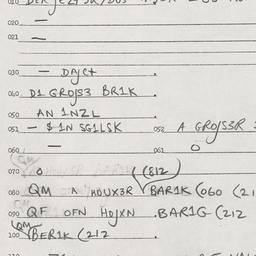 020 —
021 —
030 — DAJCT .
060 D1 GROJS3 BR1K .
050 AN 1NZL .
051 — $ 1N SG1LSK 052 A GROJS3R
060 — 061 O
070 O (812
080 QM A HOUX3R BAR1K (060 (21
090 QF OFN HOJXN . BAR1G (212
QM
100 BER1K (212